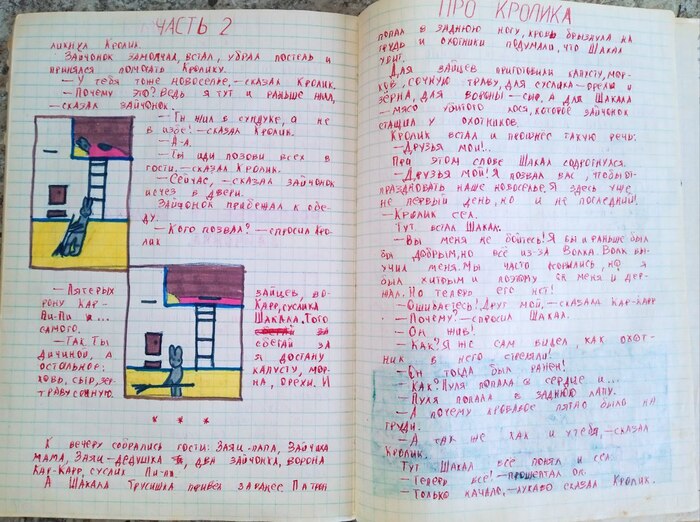 ЧАСТЬ 2
ликнул Кролик.
Зайчонок замолчал, встал, убрал постель и
принялся помогать Кролику.
— У тебя тоже новоселье, — сказал Кролик.
— Почему это? Ведь я тут и раньше жил,
— сказал зайчонок.
— Ты жил в сундуке, а не
в избе! — сказал Кролик.
— А-а.
— Ты иди позови всех в
гости. — сказал Кролик.
— Сейчас, — сказал зайчонок
исчез в двери.
Зайчонок прибежал к обе-
ду.
— Кого позвал? — спросил Кро
лик
— Пятерых зайцев, во-
рону Кар- Карр, суслика
Пи-Пи и... Шакала. Того
самого.
— Так ты сбегай за
дичиной, а я достану
остальное: капусту, мор-
ковь, сыр, зер- на, орехи. И
траву сочную.
* * *
К вечеру собрались гости: Заяц-папа, Зайчиха
мама, Заяц-дедушка, два зайчонка, ворона
Кар-Карр, суслик Пи-Пи.
А Шакала Трусишка привёл заранее. Патрон
ПРО КРОЛИКА
попал в заднюю ногу, кровь брызнула на
грудь и охотники подумали, что Шакал
убит.
Для зайцев приготовили капусту, мор-
ковь, сочную траву, для суслика — орехи и
зёрна, для вороны — сыр, а для Шакала
— мясо убитого лося, которое зайчонок
стащил у охотников.
Кролик встал и произнес такую речь:
— Друзья мои!..
При этом слове Шакал содрогнулся.
— Друзья мои! Я позвал вас, чтобы от-
праздновать наше новоселье. Я здесь уже
не первый день, но и не последний!
— Кролик сел.
Тут встал Шакал.
— Вы меня не бойтесь! Я бы и раньше был
бы добрым, но всё из-за Волка. Волк вы-
учил меня. Мы часто ссорились, но я
был хитрым и поэтому он меня и дер-
жал. Но теперь его нет!
— Ошибаетесь! Друг мой, — сказала Кар-Карр
— Почему? — спросил Шакал.
— Он жив!
— Как? Я же сам видел, как охот-
ник в него стреляли!
— Он тогда был ранен!
— Как? Пуля попала в сердце и...
— Пуля попала в заднюю лапу.
— А почему кровавое пятно было на
груди.
— А так же как и у тебя, — сказал
Кролик.
Тут Шакал всё понял и сел.
— Теперь всё! — прошептал он.
— Только начало, — лукаво сказал Кролик.